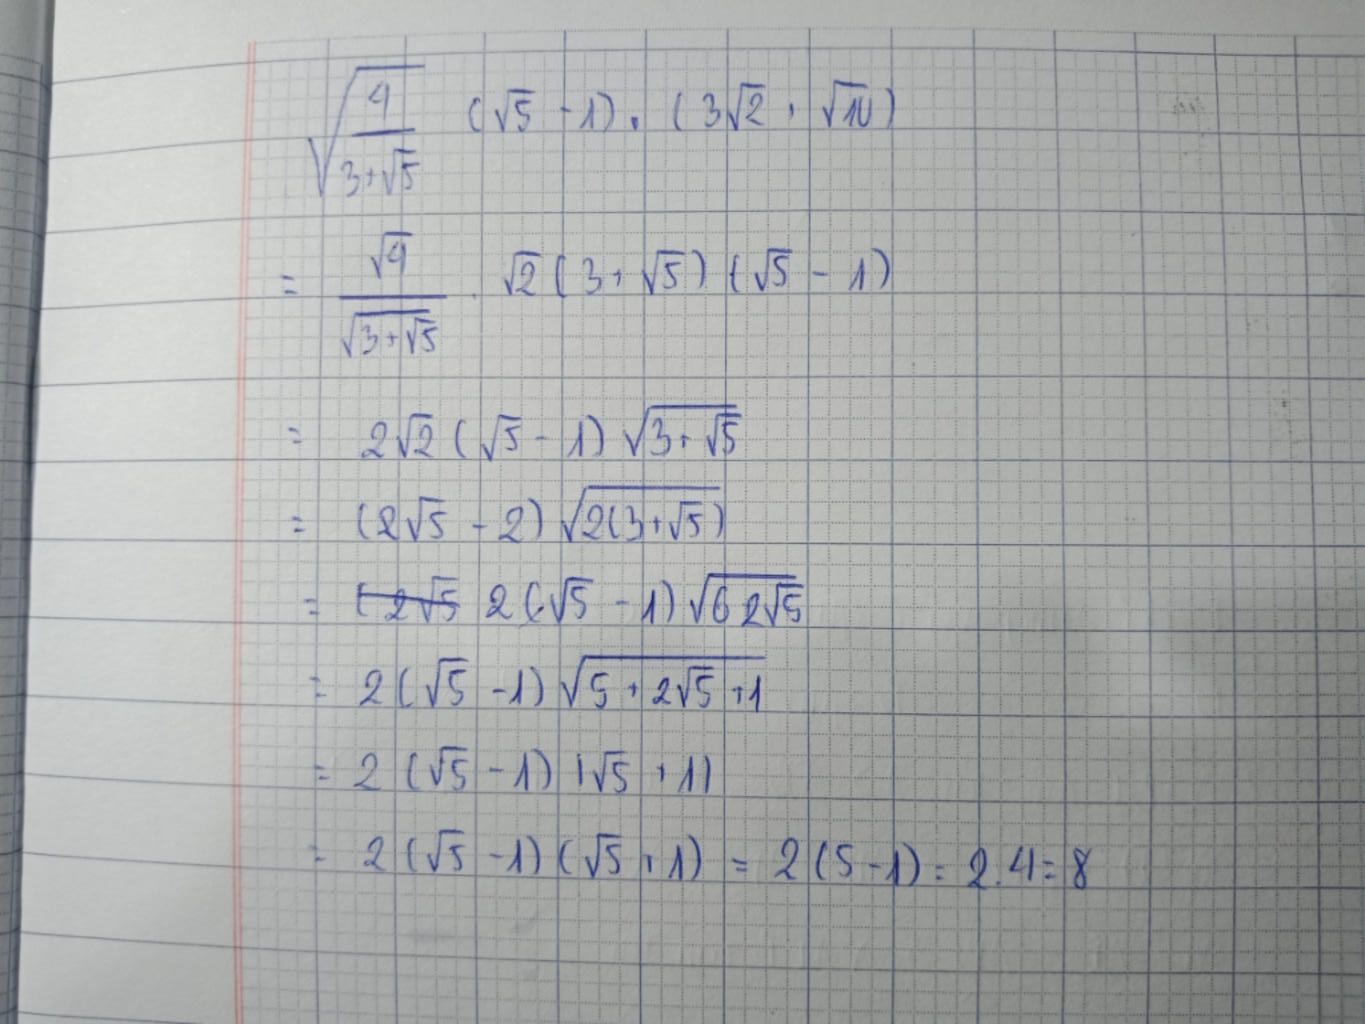 √(4/(3+√5)) (√5 - 1) . (3√2 + √10)
= √4/√(3+√5) . √2 (3 + √5) (√5 - 1)
= 2√2 (√5 - 1) √(3+√5)
= (2√5 - 2) √(2(3+√5))
= (2√5 2(√5 - 1) √(6 2√5)
= 2(√5 - 1) √(5 + 2√5 + 1)
= 2 (√5 - 1) |√5 + 1|
= 2 (√5 - 1) (√5 + 1) = 2(5 - 1) = 2.4 = 8